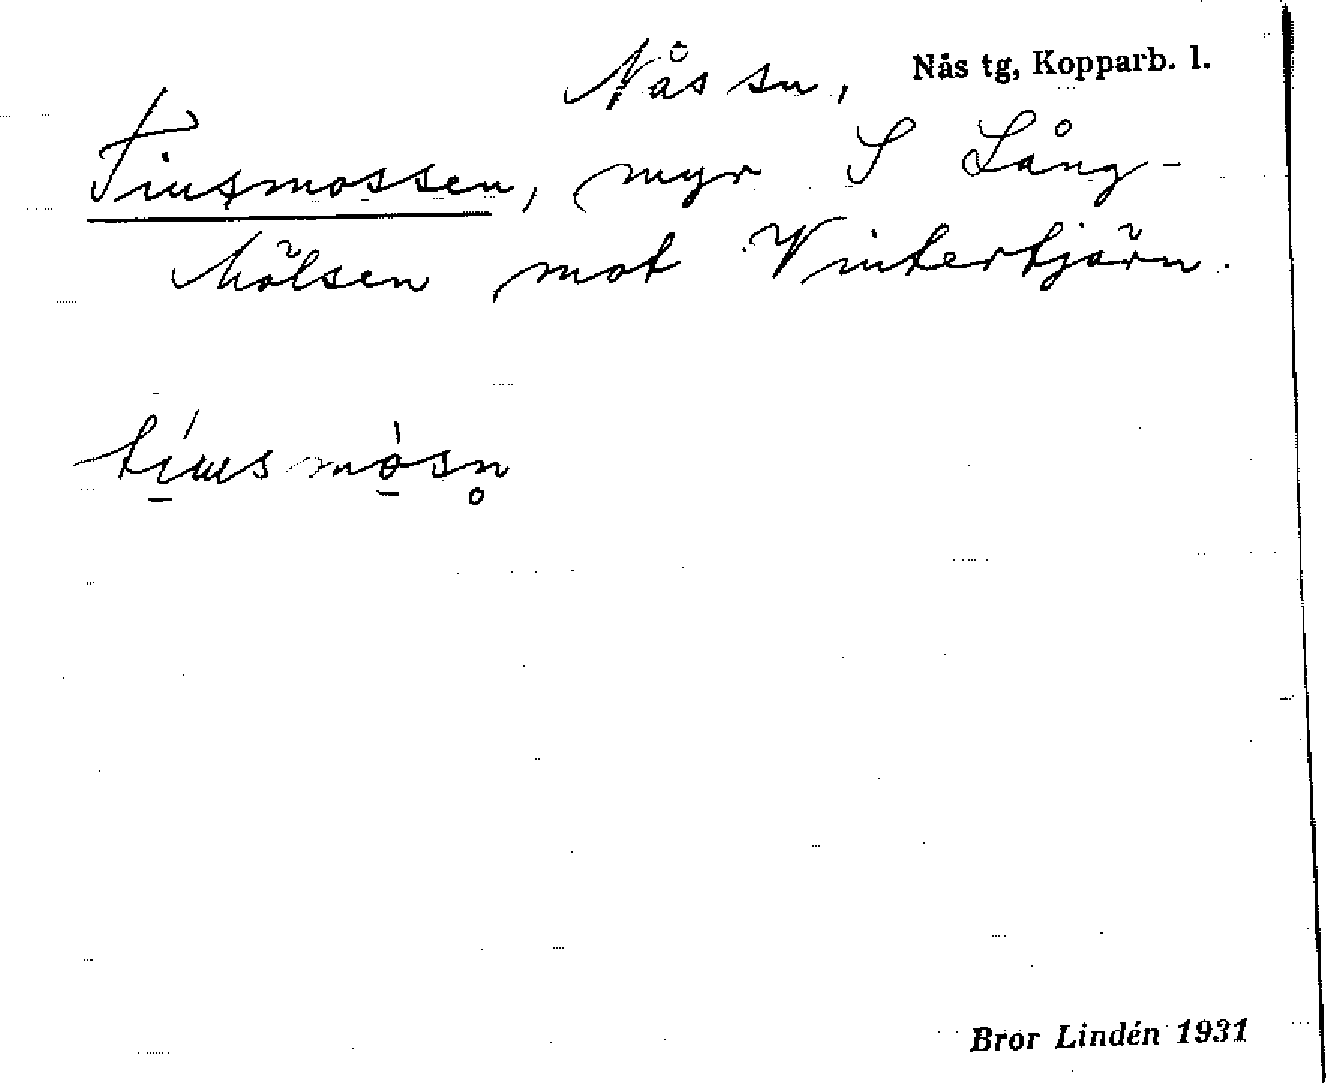 Nås sn, Nås tg, Kopparb. l.
Tiusmossen, myr S Lång-
Mölsen mot Vintertjärn.
Bror Lindén 1931